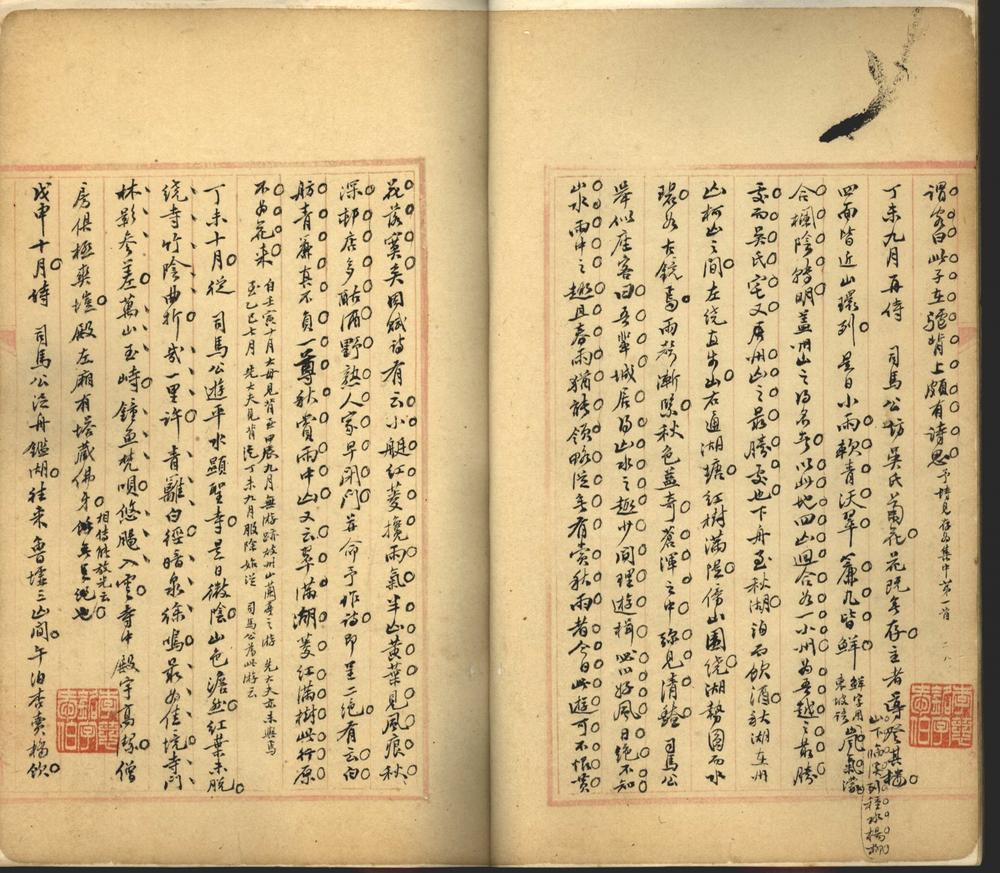 謂客曰此子在驢背上頗有詩思予詩見存為集中第一首
丁未九月再侍 司馬公坊吳氏菊花花既無存主者尊登其樓
山下臨溪列種水楊柳
四面皆近山環列 是日小雨軟青沃翠 簾几皆鮮鮮字用東坡語嵐氣濛
合檻陰轉明蓋州山之得名者以此地四山回合如一小州為吾越之最勝
處而吳氏宅又居州山之最勝處也下舟至秋湖泊而飲酒秋湖在州
山柯山之間左繞直步山右通湖塘紅樹滿隄傍山圍繞湖勢圓而水
環如古鏡焉雨於漸緊秋色益奇蒼渾之中彌見清豔 司馬公
舉似座客曰吾輩城居得山水之趣少間理遊楫必以好風日絕不知
山水雨中之趣且春雨猶能領略從無有賞秋雨者今日此遊可不恨賞
花落寞矣因賦詩有云小艇紅菱攪雨氣半山黃葉見風痕秋
深邨店多酤酒野熟人家早閉門并命予作詩即呈二絕有云白
舫青簾真不負一尊秋賞雨中山又云翠滿湖菱紅滿樹此行原
不為花來自壬寅十月大母見背至甲辰九月無游跡故州山蘭亭之游 先大夫亦未與焉
至乙巳七月 先大夫見背迄丁未九月服除始從 司馬公為此游云
丁未十月從 司馬公遊平水顯聖寺是日微陰山色澹無紅葉未脫
繞寺竹陰曲折幾一里許 青離白徑暗泉徐鳴最如佳境寺門
林影參差萬山玉峙鐘魚梵唄悠颺入雲寺中殿宇高敞僧
房俱極爽塏殿左廂有塔藏佛牙相傳能放光云
戊申十月侍 司馬公泛舟鑑湖往來魯墟三山間午泊杏賣橋飲